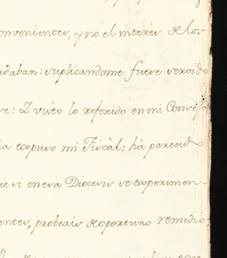 convenientes, y no el interes de los
udaban: suplicandome fuese servido
se: I visto lo referido en mi Consejo
ia expuso mi Fiscàl: hà parecido
que si en esa Diocesis se experimen-
ientes, probeais de oportuno remedio,